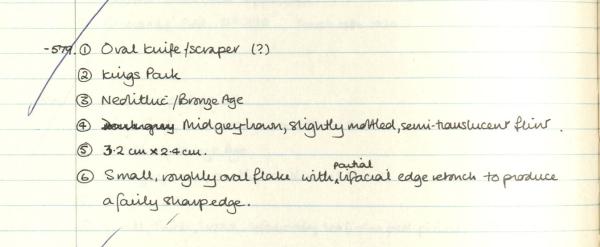 -579. ① Oval knife/scraper (?)
② Kings Park
③ Neolithic/Bronze Age
④ Mid grey-brown, slightly mottled, semi-translucent flint.
⑤ 3.2 cm x 2.4 cm.
partial
⑥ Small, roughly oval flake with bifacial edge retouch to produce
a fairly sharp edge.